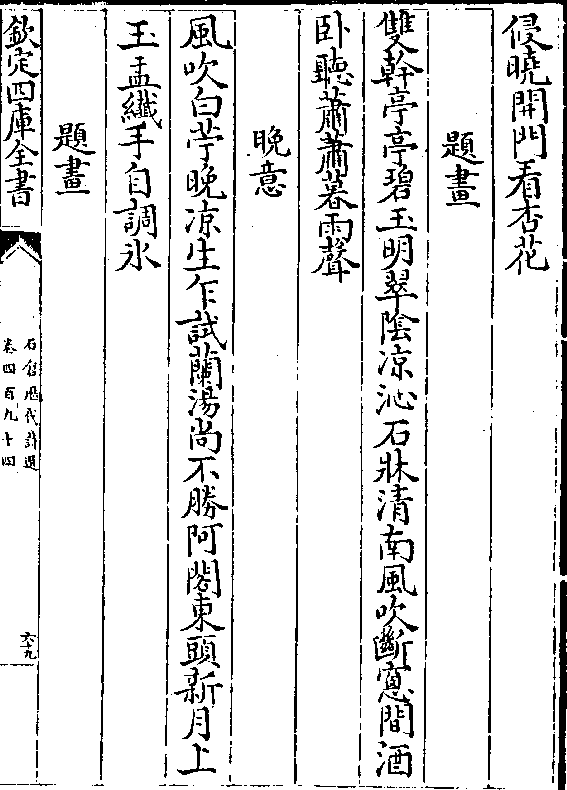 侵曉開門看杏花
題畫
雙幹亭亭碧玉明翠陰凉沁石牀清南風吹斷窻間酒
卧聽蕭蕭暮雨聲
晚意
風吹白苧晚凉生乍試蘭湯尚不勝阿閣東頭新月上
玉盂纖手自調氷
題畫
欽定四庫全書
石倉歴代詩選
卷四百九十四
六九